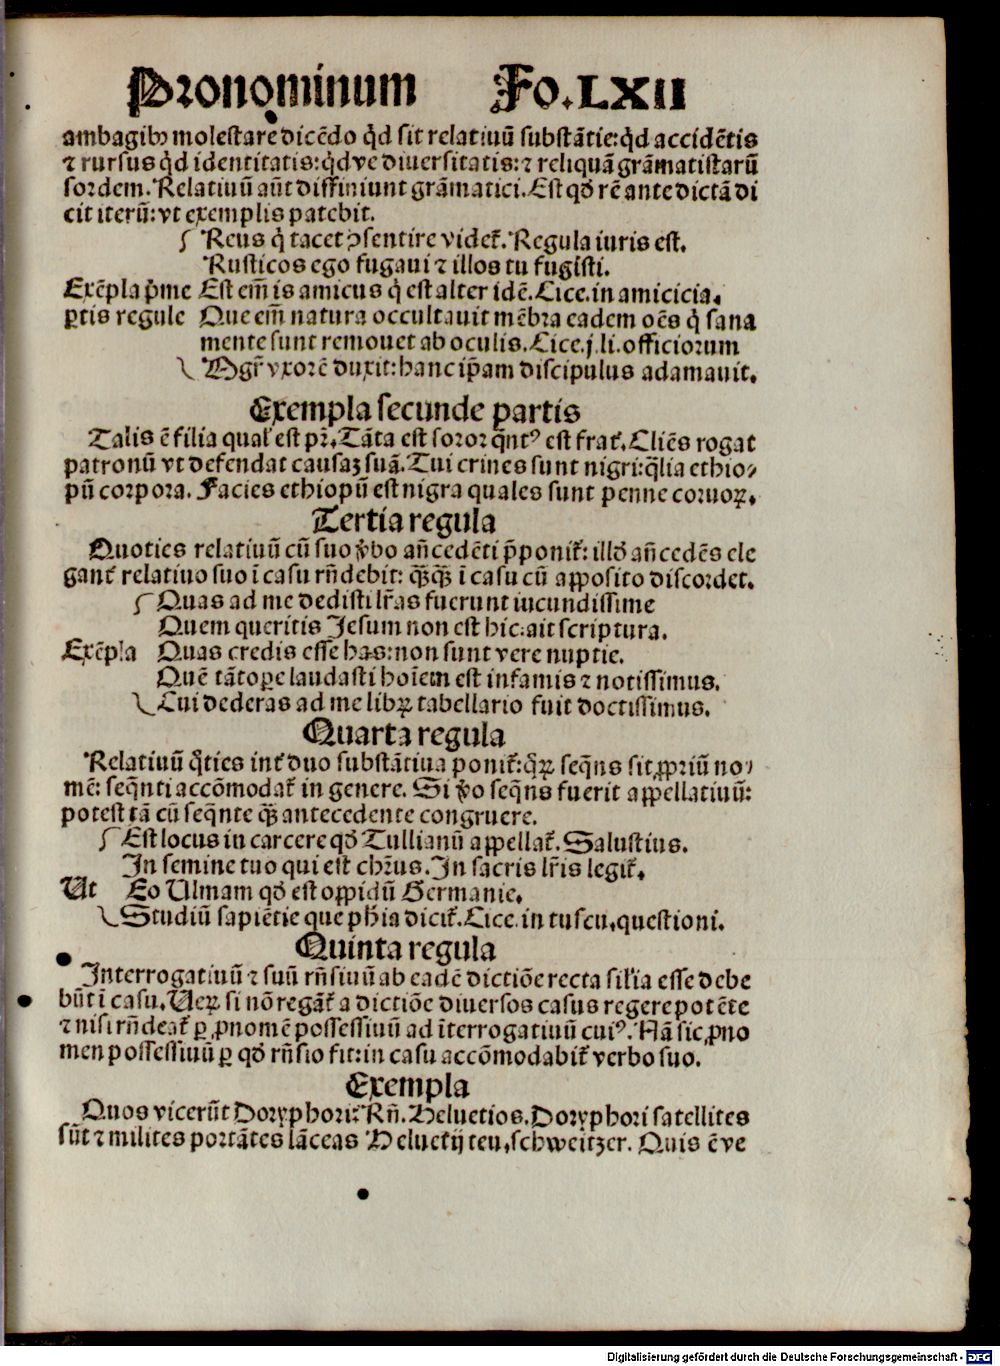 Pronominum Fo. LXII
ambagibꝰ molestare dicēdo qd̓ sit relatiuū substātie: qd̓ accidētis
⁊ rursus qd̓ identitatis: qd̓ ve diuersitatis: ⁊ reliquā grāmatistarū
sordem. Relatiuū aūt diffiniunt grāmatici. Est qd̓ rē ante dictā di
cit iterū: vt exemplis patebit.
Reus q̇ tacet ↄsentire videt᷑. Regula iuris est.
Rusticos ego fugaui ⁊ illos tu fugisti.
Exēpla p̓me Est em̄ is amicus q̇ est alter idē. Cice. in amicicia.
ꝑtis regule Que em̄ natura occultauit mēbra eadem oēs q̇ sana
mente sunt remouet ab oculis. Cice. j. li. officiorum
Mgr̄ vxorē duxit: hanc ip̄am discipulus adamauit.
Exempla secunde partis
Talis ē filia qual᷑ est pr̄. Tāta est soror q̄ntꝰ est frat᷑. Cliēs rogat
patronū vt defendat causaꝫ suā. Tui crines sunt nigri: q̄lia ethio⸗
pū corpora. Facies ethiopū est nigra quales sunt penne coruoꝝ.
Tertia regula
Quoties relatiuū cū suo v̓bo an̄cedēti p̄ponit᷑: illd̓ an̄cedēs ele
gant᷑ relatiuo suo ī casu rn̄debit: qꝫqꝫ ī casu cū apposito discordet.
Quas ad me dedisti lr̄as fuerunt iucundissime
Quem queritis Jesum non est hic: ait scriptura.
Exēpla Quas credis esse has: non sunt vere nuptie.
Quē tātoꝑe laudasti hoīem est infamis ⁊ notissimus.
Cui dederas ad me libꝝ tabellario fuit doctissimus.
Quarta regula
Relatiuū q̇ties int᷑ duo substātiua ponit᷑: q̇ꝝ seq̄ns sit ꝓpriū no⸗
mē: seq̄nti accōmodat᷑ in genere. Si v̓o seq̄ns fuerit appellatiuū:
potest tā cū seq̄nte qꝫ antecedente congruere.
Est locus in carcere qd̓ Tullianū appellat᷑. Salustius.
In semine tuo qui est chr̄us. In sacris lr̄is legit᷑.
Ut Eo Ulmam qd̓ est oppidū Germanie.
Studiū sapiētie que ph̄ia dicit᷑. Cice. in tuscu. questioni.
Quinta regula
Interrogatiuū ⁊ suū rn̄siuū ab eadē dictiōe recta sil̓ia esse debe
būt ī casu. Ueꝝ si nō regāt᷑ a dictiōe diuersos casus regere potēte
⁊ nisi rn̄deat᷑ ꝑ ꝓnomē possessiuū ad īterrogatiuū cuiꝰ. Nā sic ꝓno
men possessiuū ꝑ qd̓ rn̄sio fit: in casu accōmodabit᷑ verbo suo.
Exempla
Quos vicerūt Doryphori: Rn̄. Heluetios. Doryphori satellites
sūt ⁊ milites portātes lāceas Heluetij teu. schweitzer. Quis ē ve
Digitalisierung gefördert durch die Deutsche Forschungsgemeinschaft - DFG